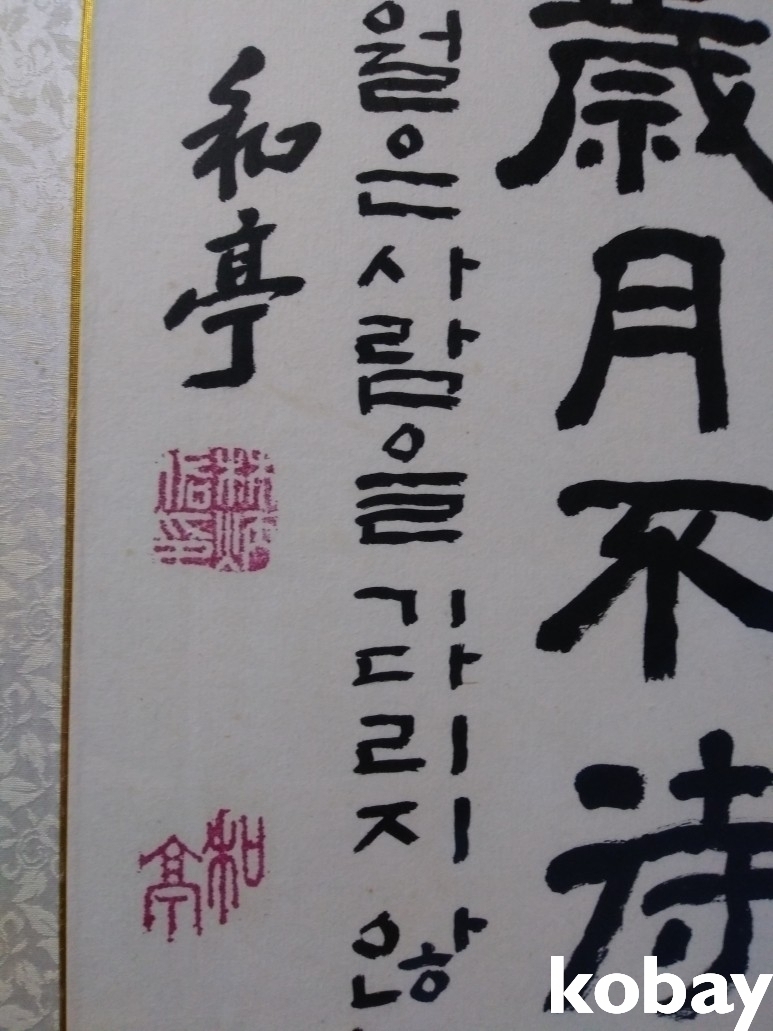 歲月不待
월은 사람을 기다리지 않
和亭
和亭
kobay